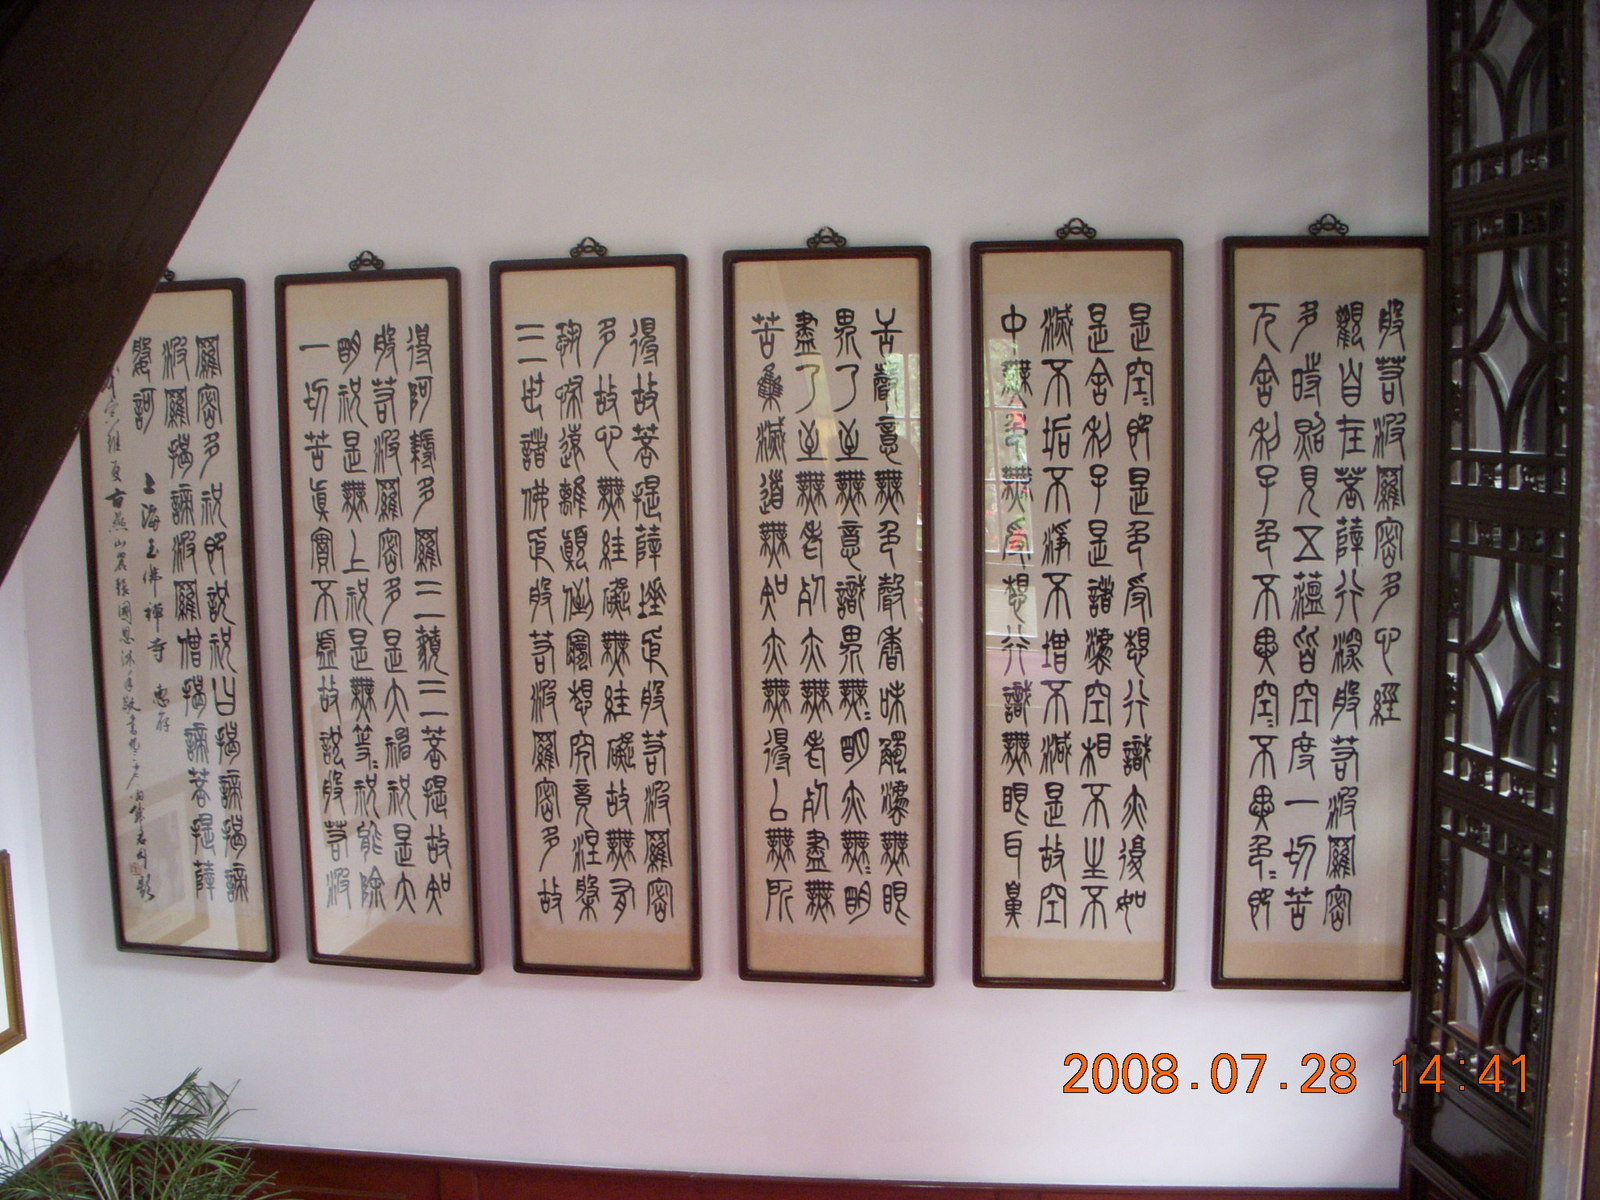 般若波羅密多心經
觀自在菩薩行深般若波羅密
多時照見五蘊皆空度一切苦
厄舍利子色不異空〻不異色〻即
是空〻即是色受想行識亦復如
是舍利子是諸法空相不生不
滅不垢不淨不增不減是故空
中無色無受想行識無眼耳鼻
舌聲意無色聲香味觸法無眼
界乃至無意識界無〻明亦無〻明
盡乃至無老死亦無老死盡無
苦集滅道無知亦無得以無所
得故菩提薩埵依般若波羅密
多故心無罣礙無罣礙故無有
恐怖遠離顛倒夢想究竟涅槃
三世諸佛依般若波羅密多故
得阿耨多羅三藐三菩提故知
般若波羅密多是大神祝是大
明祝是無上祝是無等〻祝能除
一切苦真實不虛故說般若波
羅密多祝即說祝曰揭諦揭諦
波羅揭諦波羅僧揭諦菩提薩
婆訶
上海玉佛禪寺 惠存